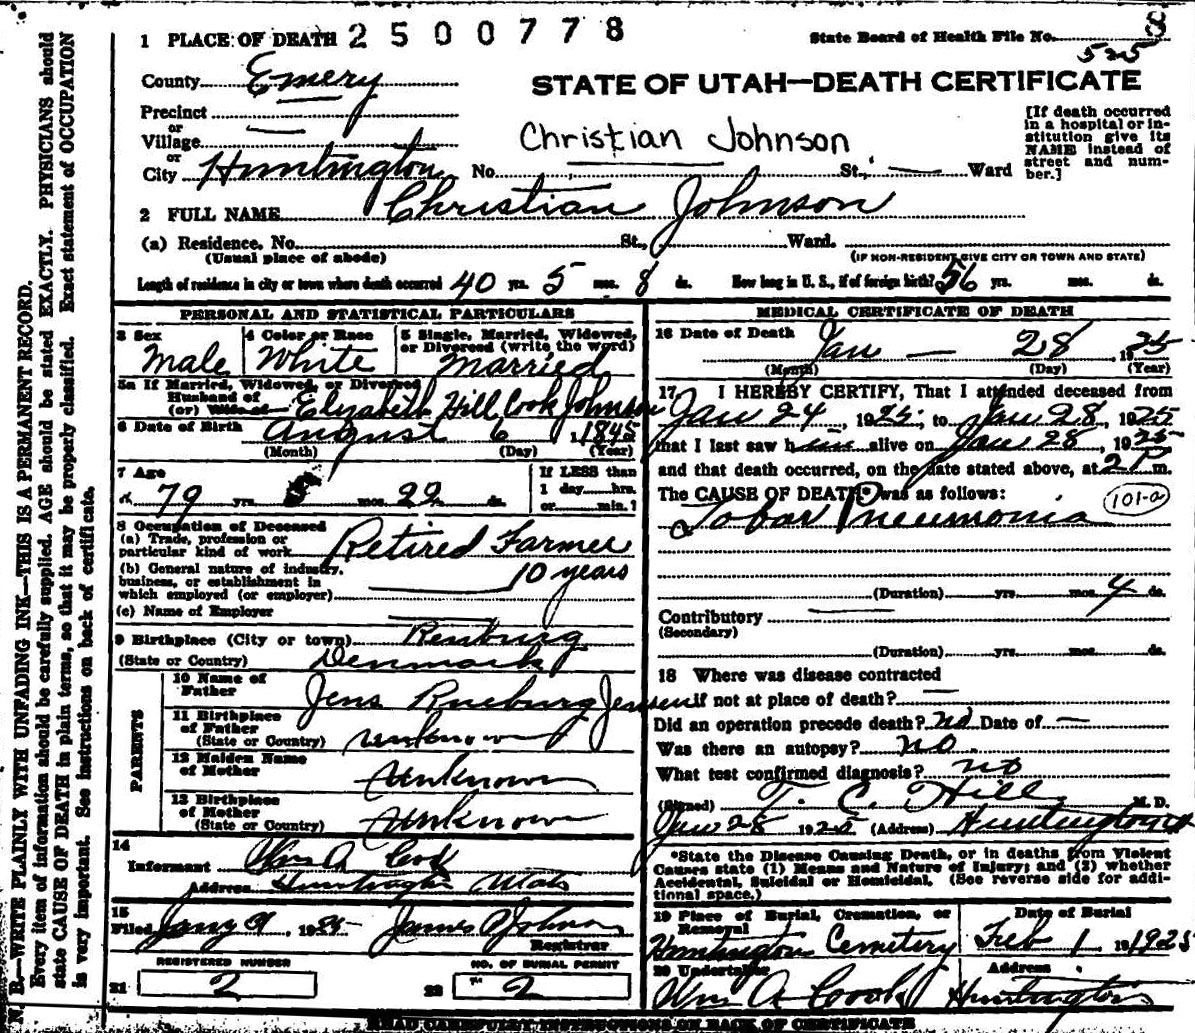 1 PLACE OF DEATH 2500778
State Board of Health File No. 8
525
County Emery
STATE OF UTAH—DEATH CERTIFICATE
Precinct
or
Village
or
City Huntington No. St.; Ward
Christian Johnson
[If death occurred
in a hospital or in-
stitution give its
NAME instead of
street and num-
ber.]
2 FULL NAME Christian Johnson
(a) Residence, No. St., Ward.
(Usual place of abode)
(IF NON-RESIDENT GIVE CITY OR TOWN AND STATE)
Length of residence in city or town where death occurred 40 yrs. 5 mos. 8 ds. How long in U. S., if of foreign birth? 56 yrs. mos. ds.
PERSONAL AND STATISTICAL PARTICULARS
3 Sex
Male
4 Color or Race
White
5 Single, Married, Widowed,
or Divorced (write the word)
Married
5a If Married, Widowed, or Divorced
Husband of
(or) Wife of Elizabeth Hill Cook Johnson
6 Date of Birth August 6 1845
(Month) (Day) (Year)
7 Age
79 yrs. mos. 22 ds.
If LESS than
1 day hrs.
or min.?
8 Occupation of Deceased
(a) Trade, profession or
particular kind of work Retired Farmer
(b) General nature of industry,
business, or establishment in
which employed (or employer) 10 years
(c) Name of Employer
9 Birthplace (City or town)
(State or Country) Denmark
PARENTS
10 Name of
Father Jens Rueburg Jensen
11 Birthplace
of Father
(State or Country) unknown
12 Maiden Name
of Mother unknown
13 Birthplace
of Mother
(State or Country) unknown
14
Informant Wm A Cook
Address Huntington Utah
15
Filed 1925 James P Johnson
Registrar
REGISTERED NUMBER
21 2
NO. OF BURIAL PERMIT
22 2
MEDICAL CERTIFICATE OF DEATH
16 Date of Death Jan — 28, 1925
(Month) (Day) (Year)
17 I HEREBY CERTIFY, That I attended deceased from
Jan 24, 1925, to Jan 28, 1925
that I last saw him alive on Jan 28, 1925
and that death occurred, on the date stated above, at 2 P m.
The CAUSE OF DEATH* was as follows: 101-a
Lobar Pneumonia
(Duration) yrs. mos. 4 ds.
Contributory
(Secondary)
(Duration) yrs. mos. ds.
18 Where was disease contracted
if not at place of death? —
Did an operation precede death? no Date of —
Was there an autopsy? no.
What test confirmed diagnosis? no
(Signed) T. C. Hill M. D.
Jan 28 1925 (Address) Huntington
*State the Disease Causing Death, or in deaths from Violent
Causes state (1) Means and Nature of Injury; and (2) whether
Accidental, Suicidal or Homicidal. (See reverse side for addi-
tional space.)
19 Place of Burial, Cremation, or
Removal
Huntington Cemetery
Date of Burial
Feb 1 1925
20 Undertaker
Wm A Cook
Address
Huntington
READ CAREFULLY INSTRUCTIONS ON BACK OF CERTIFICATE
N. B.—WRITE PLAINLY WITH UNFADING INK—THIS IS A PERMANENT RECORD.
Every item of information should be carefully supplied. AGE should be stated EXACTLY. PHYSICIANS should
state CAUSE OF DEATH in plain terms, so that it may be properly classified. Exact statement of OCCUPATION
is very important. See instructions on back of certificate.